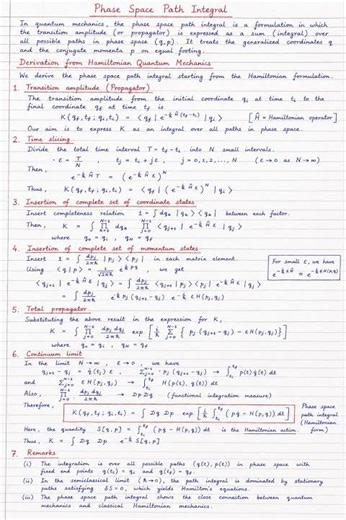 Phase Space Path Integral
In quantum mechanics, the phase space path integral is a formulation in which
the transition amplitude (or propagator) is expressed as a sum (integral) over
all possible paths in phase space (q, p). It treats the generalized coordinates q
and the conjugate momenta p on equal footing.
Derivation from Hamiltonian Quantum Mechanics
We derive the phase space path integral starting from the Hamiltonian formulation.
1. Transition amplitude (Propagator)
The transition amplitude from the initial coordinate qᵢ at time tᵢ to the
final coordinate q_f at time t_f is
K(q_f, t_f; qᵢ, tᵢ) = ⟨q_f | e^{-i/ħ Ĥ(t_f - tᵢ)} | qᵢ⟩ [Ĥ = Hamiltonian operator]
Our aim is to express K as an integral over all paths in phase space.
2. Time slicing
Divide the total time interval T = t_f - tᵢ into N small intervals.
ε = T/N, t_j = tᵢ + jε, j = 0, 1, 2, ..., N (ε → 0 as N → ∞)
Then,
e^{-i/ħ Ĥ T} = (e^{-i/ħ Ĥ ε})^N
Thus, K(q_f, t_f; qᵢ, tᵢ) = ⟨q_f | (e^{-i/ħ Ĥ ε})^N | qᵢ⟩
3. Insertion of complete set of coordinate states
Insert completeness relation 1 = ∫ dq_n |q_n⟩ ⟨q_n| between each factor.
Then, K = ∫ ∏ dq_n ∏ ⟨q_{j+1} | e^{-i/ħ Ĥ ε} | q_j⟩
where q_0 = qᵢ, q_N = q_f
4. Insertion of complete set of momentum states
Insert 1 = ∫ dp_j/2πħ |p_j⟩ ⟨p_j| in each matrix element.
For small ε, we have
Using ⟨q|p⟩ = 1/√2πħ e^{i/ħ pq}, we get
5. Total propagator
Substituting the above result in the expression for K,
where q_0 = qᵢ, q_N = q_f
6. Continuum limit
In the limit N → ∞, ε → 0, we have
Also, (functional integration measure)
Therefore,
K(q_f, t_f; qᵢ, tᵢ) = ∫ Dq Dp exp [i/ħ ∫ (pq̇ - H(p,q)) dt]
Phase space
path integral
(Hamiltonian
form)
Here, the quantity S[q,p] = ∫ (pq̇ - H(p,q)) dt is the Hamiltonian action.
Thus, K = ∫ Dq Dp S[q,p]
7. Remarks
(i) The integration is over all possible paths (q(t), p(t)) in phase space with
fixed end points q(tᵢ) = qᵢ and q(t_f) = q_f.
(ii) In the semiclassical limit (ħ→0), the path integral is dominated by stationary
paths satisfying δS = 0, which yields Hamilton's equations.
(iii) The phase space path integral shows the close connection between quantum
mechanics and classical Hamiltonian mechanics.